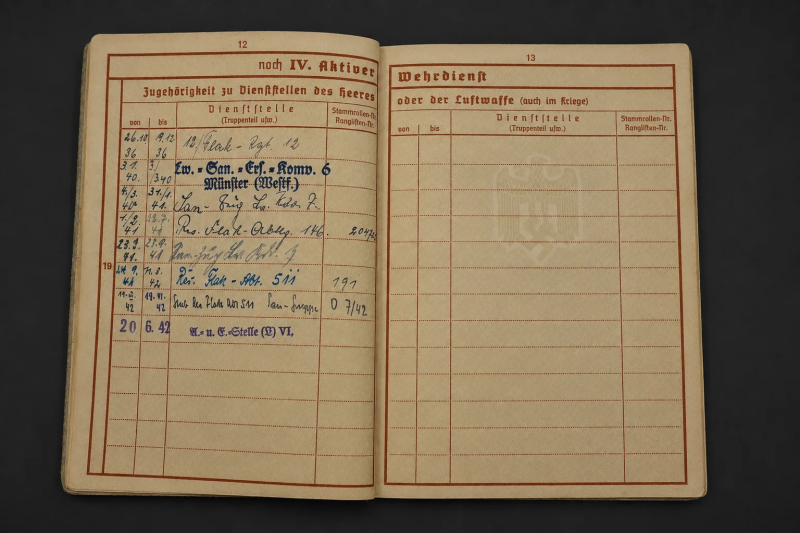 12
noch IV. Aktiver
Zugehörigkeit zu Dienststellen des Heeres
von
bis
Dienststelle
(Truppenteil usw.)
Stammrollen-Nr.
Ranglisten-Nr.
26.10 9.12 12/Flak-Rgt. 12
36 36
3.1. 3/ Lw.-San.-Ers.-Komp. 6
40. 3.40 Münster (Westf.)
4./3. 31./1. San-
40 41.
1./2. Res. Flak-Abtlg. 146.
41 41
23.9. 23.9.
41. 41
19
24.9. 11.3. Res. Flak-Abt. 511 191
41 42
19.VI. Stab Res Flak Abt 511 San-Gruppe O 7/42
42 42
20 6. 42 A.- u. E.-Stelle (L) VI.
13
Wehrdienst
oder der Luftwaffe (auch im Kriege)
von
bis
Dienststelle
(Truppenteil usw.)
Stammrollen-Nr.
Ranglisten-Nr.